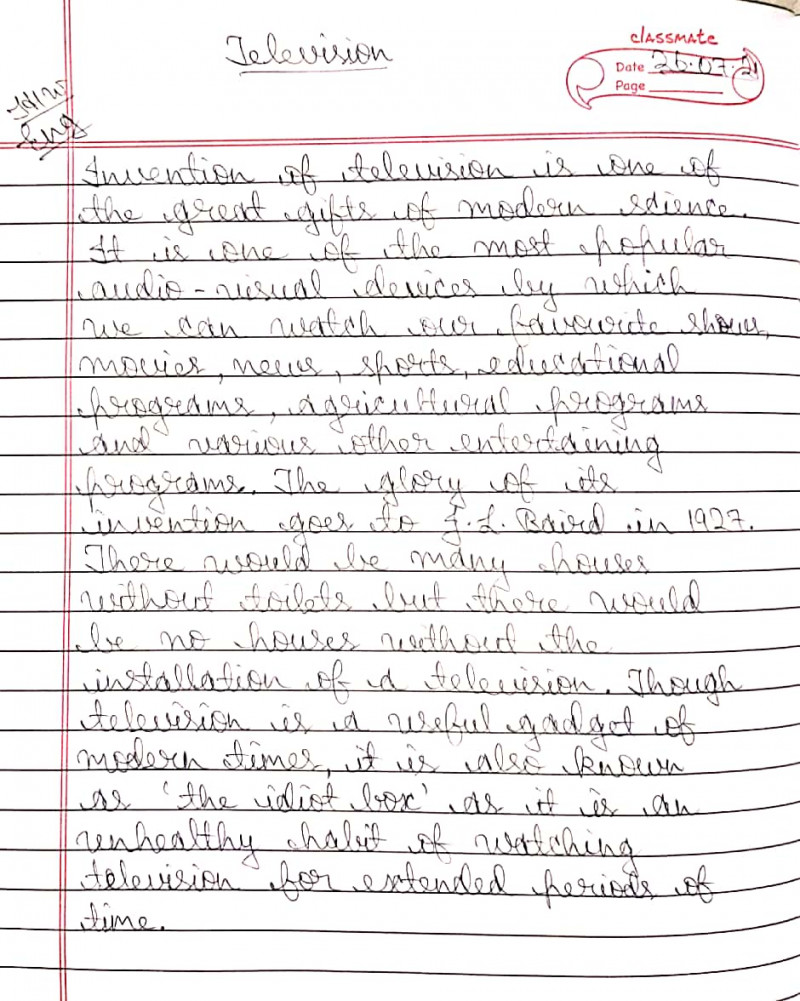 Television
classmate
Date 26.07.21
Page
H/W
Eng
Invention of television is one of
the great gifts of modern science.
It is one of the most popular
audio-visual devices by which
we can watch our favourite shows,
movies, news, sports, educational
programs, agricultural programs
and various other entertaining
programs. The glory of its
invention goes to J.L. Baird in 1927.
There would be many houses
without toilets but there would
be no houses without the
installation of a television. Though
television is a useful gadget of
modern times, it is also known
as 'the idiot box' as it is an
unhealthy habit of watching
television for extended periods of
time.